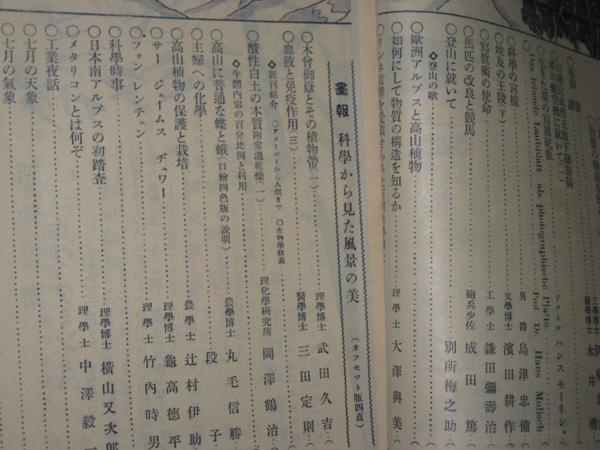 Das frische Laubblatt als photographische Platte.
Prof. Dr. Hans Molisch
ドクトル ハンス モーリシ
○科學の宮様 男爵 島津忠備
○埃及の王陵(下) 文學博士 濱田耕作
○寫眞術の使命 工學士 鎌田彌壽治
○馬匹の改良と競馬 砲兵少佐 成田篤
○登山に就いて 別所梅之助
◇登山の歌
○歐洲アルプスと高山植物
○如何にして物質の構造を知るか 理學士 大澤與美
畫報 科學から見た風景の美 (オフセット版四頁)
○木曾御嶽とその植物帶(一) 理學博士 武田久吉
○血液と免疫作用(三) 醫學博士 三田定則
◇新刊紹介 ○アメーバーから人間まで ○生物學精義
○酸性白土の本質附常溫乾燥(一) 理化學研究所 岡澤鶴治
◇牛體內容の百分比例と利用
○高山に普通な蝶と蛾(口繪四色版の說明) 農學博士 丸毛信勝
○主婦への化學 段子
○高山植物の保護と栽培 農學士 辻村伊助
○サー ジェームス ヂュワー 理學博士 龜高德平
○フォン レンチェン 理學士 竹內時男
○科學時事
○日本南アルプスの初踏査 理學博士 橫山又次郎
○メタリコンとは何ぞ 理學士 中澤毅一
○工業夜話
○七月の天象
○七月の氣象